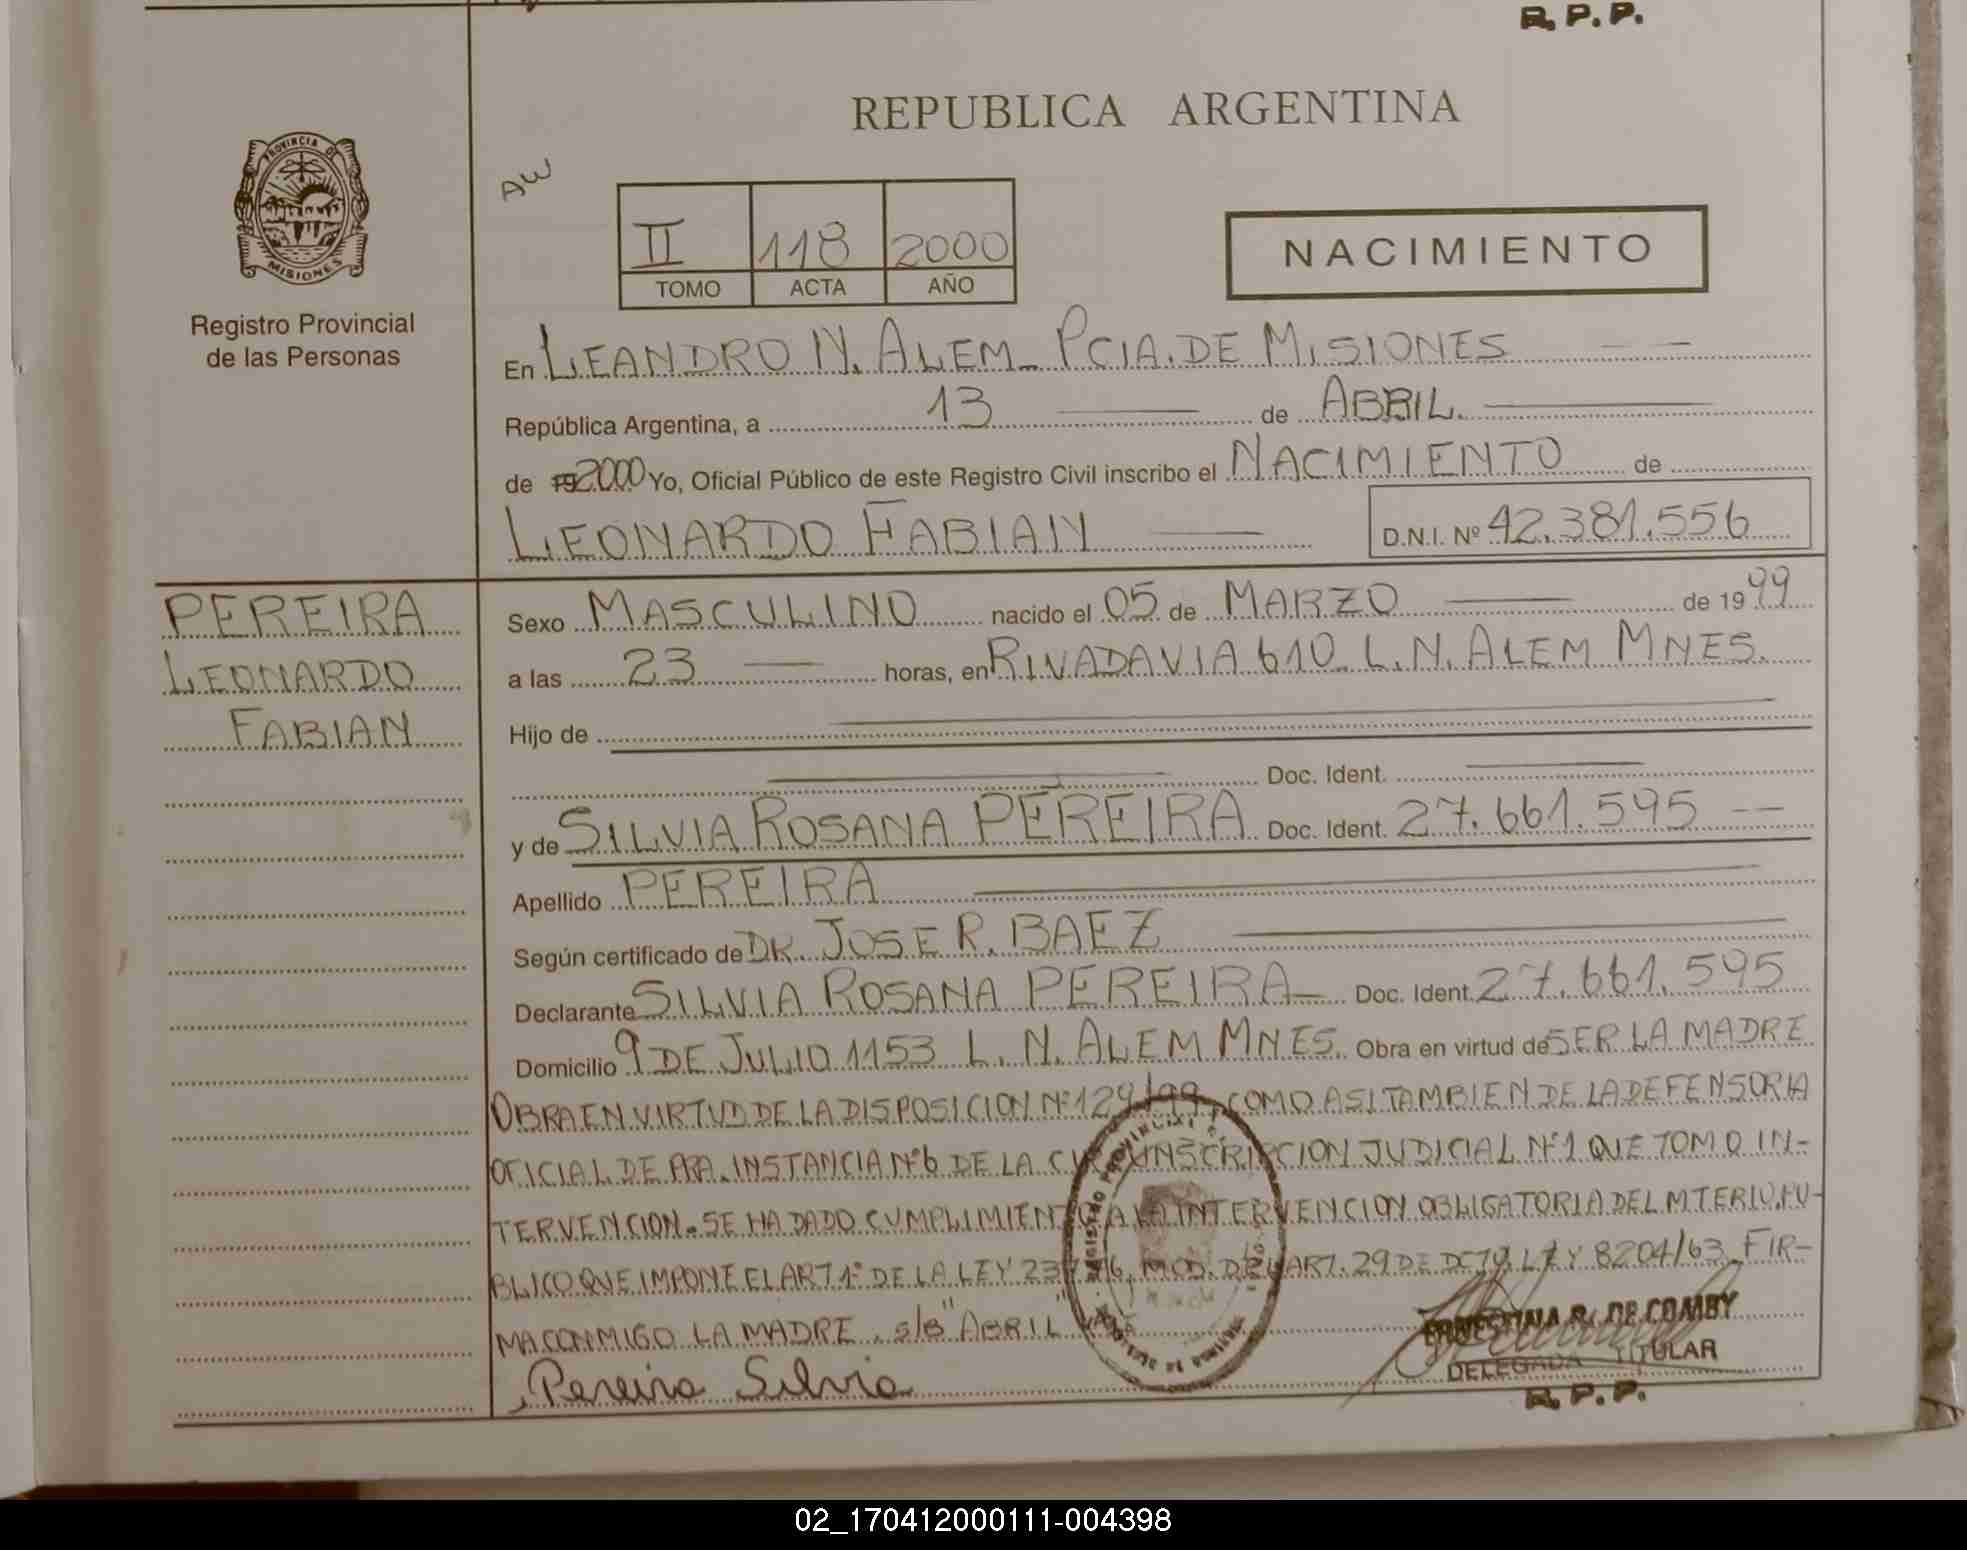 R. P. P.
REPUBLICA ARGENTINA
PROVINCIA DE
MISIONES
Registro Provincial
de las Personas
AW
II 118 2000
TOMO ACTA AÑO
NACIMIENTO
En LEANDRO N. ALEM_ PCIA. DE MISIONES
República Argentina, a 13 de ABRIL.
de 19 2000 Yo, Oficial Público de este Registro Civil inscribo el NACIMIENTO de
LEONARDO FABIAN D.N.I. Nº 42.381.556
PEREIRA
LEONARDO
FABIAN
Sexo MASCULINO nacido el 05 de MARZO de 1999
a las 23 horas, en RIVADAVIA 610_ L. N. ALEM MNES.
Hijo de
Doc. Ident.
y de SILVIA ROSANA PEREIRA Doc. Ident. 27.661.595 --
Apellido PEREIRA
Según certificado de DR. JOSE R. BAEZ
Declarante SILVIA ROSANA PEREIRA_ Doc. Ident. 27.661.595
Domicilio 9 DE JULIO 1153 L. N. ALEM MNES. Obra en virtud de SER LA MADRE
OBRA EN VIRTUD DE LA DISPOSICION Nº 129/99, COMO ASI TAMBIEN DE LA DEFENSORIA
OFICIAL DE PRA. INSTANCIA Nº6 DE LA CIRCUNSCRIPCION JUDICIAL Nº1 QUE TOMO IN-
TERVENCION. SE HA DADO CUMPLIMIENTO A LA INTERVENCION OBLIGATORIA DEL MTERIO. PU-
BLICO QUE IMPONE EL ART 1º DE LA LEY MOD. DEL ART. 29 DE LEY 8204/63. FIR-
MA CONMIGO LA MADRE. s/B "ABRIL" VALE
Pereira Silvia
REGISTRO PROVINCIAL
ERNESTINA R. DE COMBY
DELEGADA TITULAR
R. P. P.
02_170412000111-004398